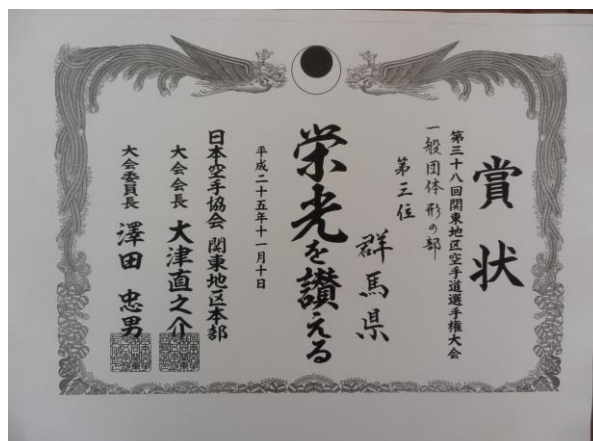 賞状
第三十八回関東地区空手道選手権大会
一般団体 形の部
第三位
群馬県
栄光を讃える
平成二十五年十一月十日
日本空手協会 関東地区本部
大会会長 大津直之介
大会委員長 澤田 忠男